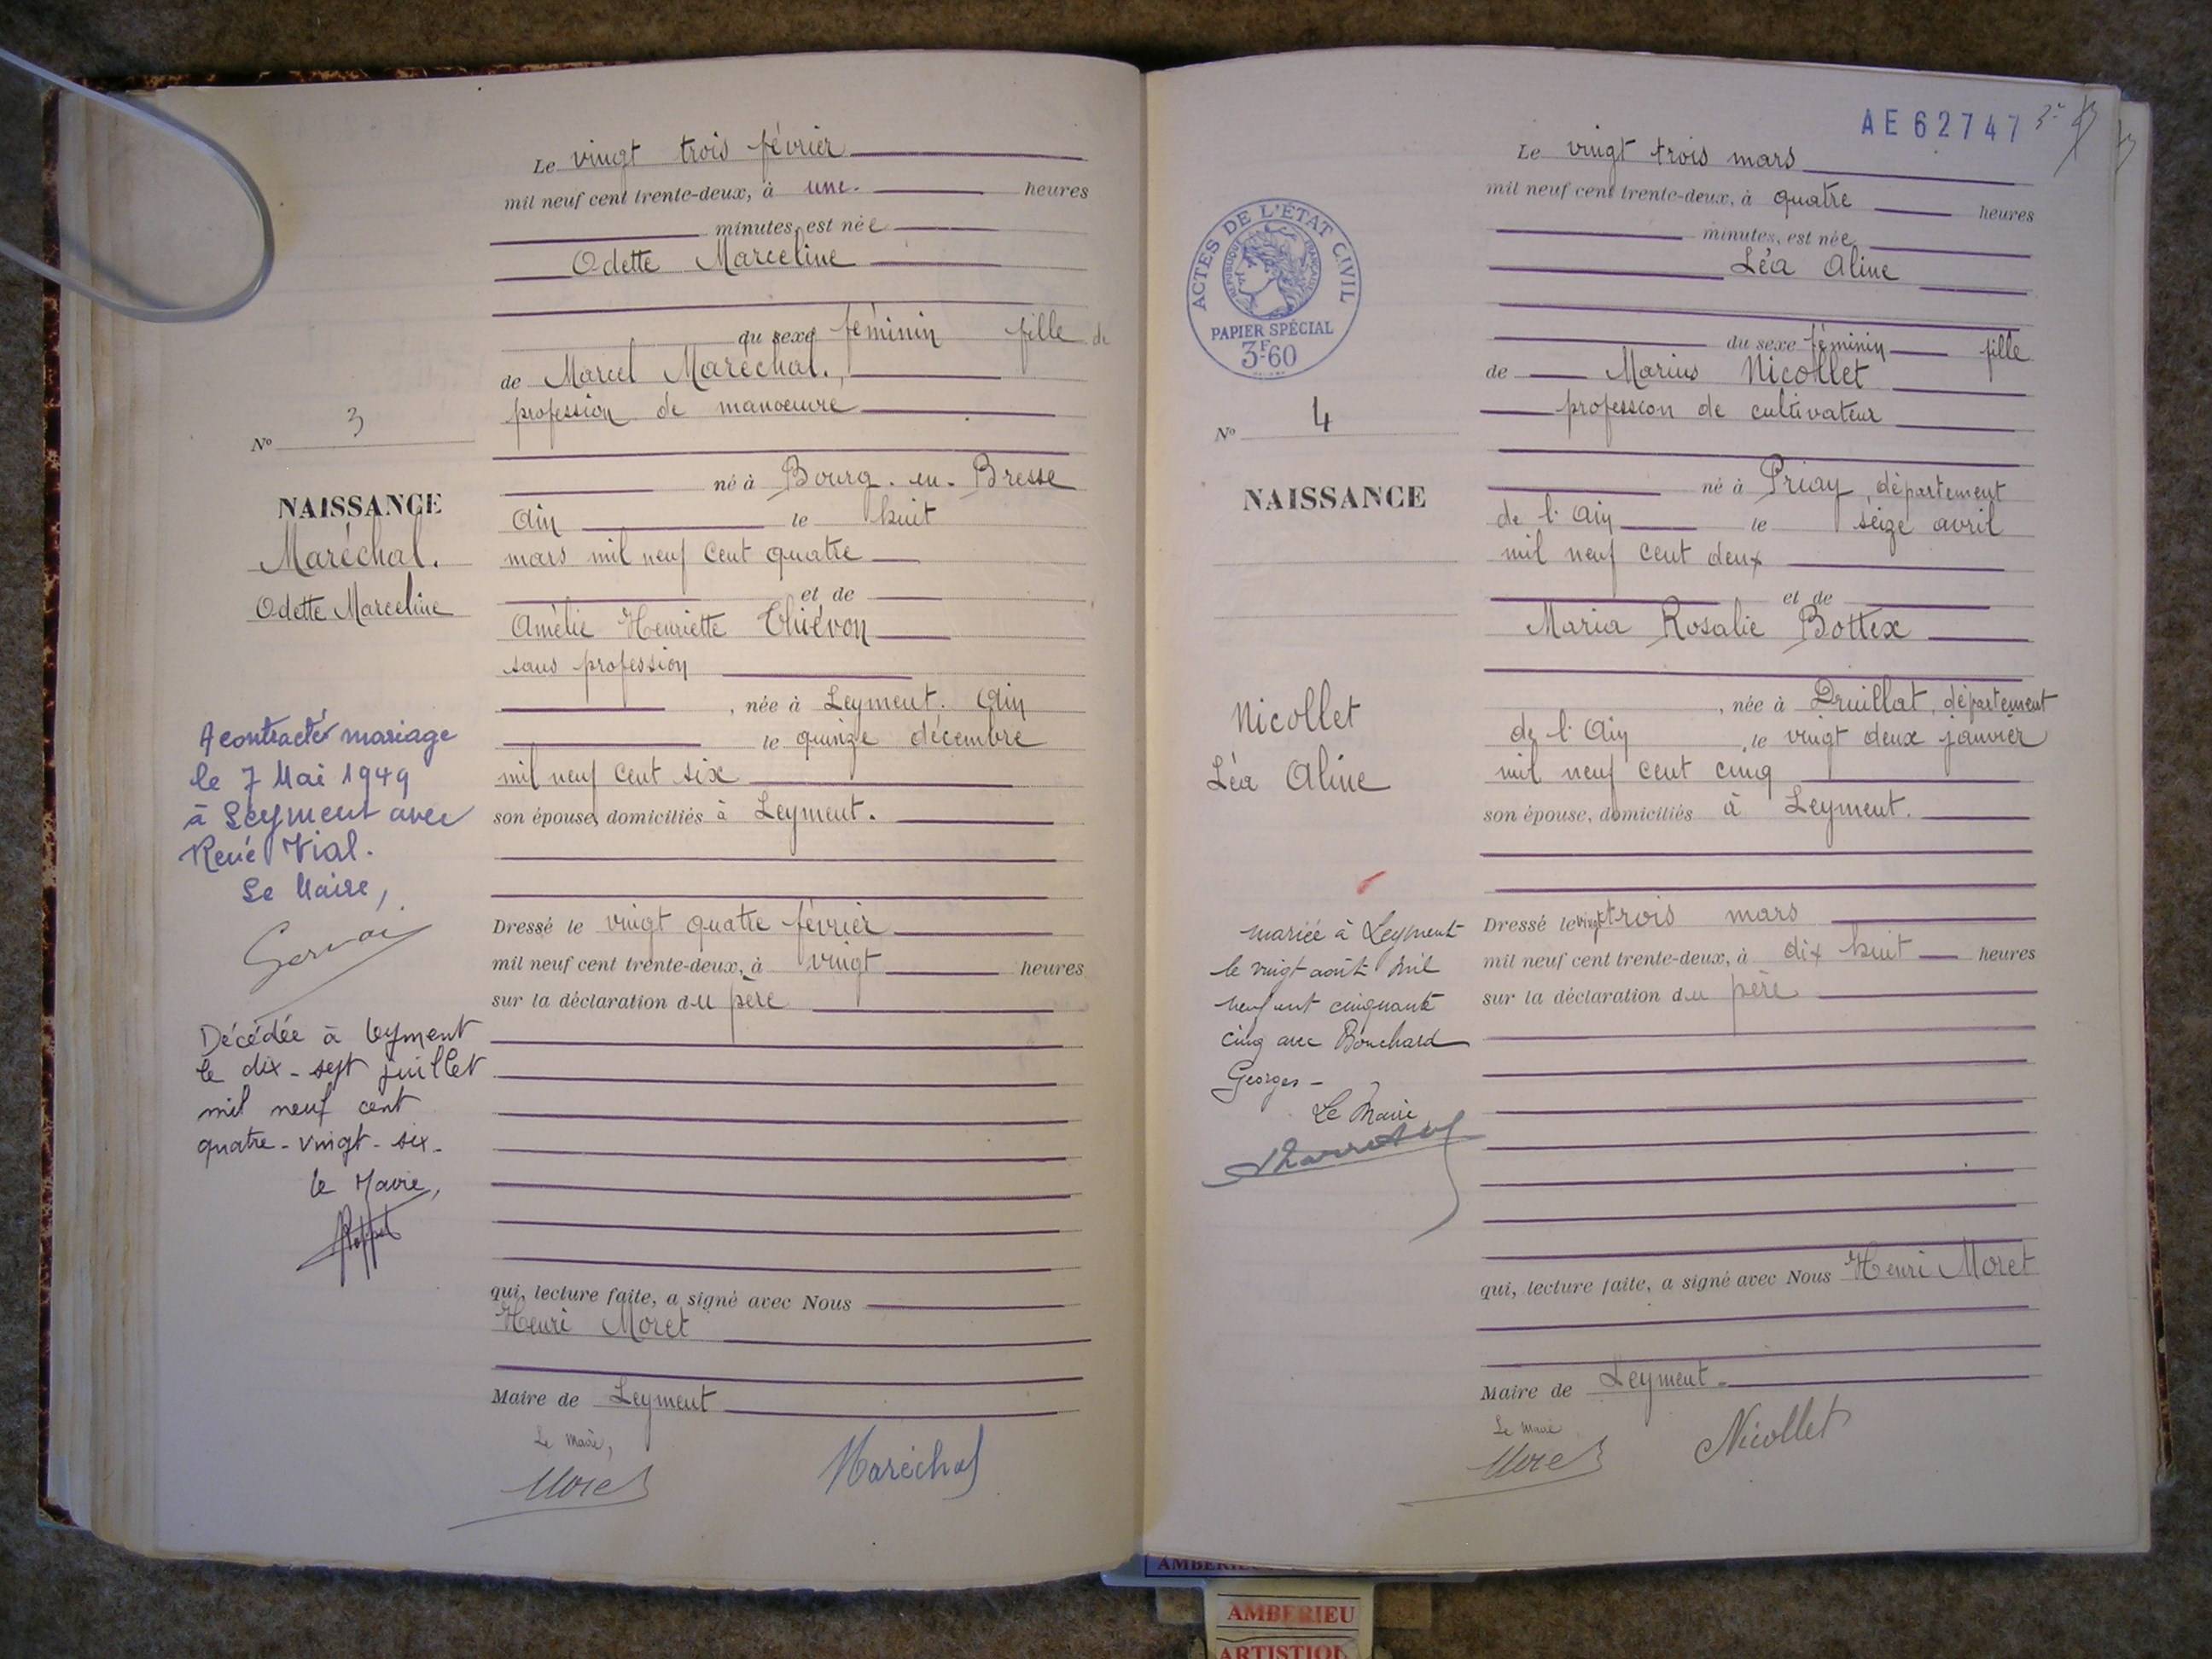 Le vingt trois février
mil neuf cent trente-deux, à une heures
minutes, est née
Odette Marceline
du sexe féminin fille de
de Marcel Maréchal.,
profession de manoeuvre
né à Bourg-en-Bresse
Ain le huit
mars mil neuf cent quatre
et de
Amélie Henriette Thiévon
sans profession
, née à Leyment. Ain
le quinze décembre
mil neuf cent six
son épouse, domiciliés à Leyment.
Dressé le vingt quatre février
mil neuf cent trente-deux, à vingt heures
sur la déclaration du père
qui, lecture faite, a signé avec Nous
Henri Moret
Maire de Leyment
Le Maire,
Moret
Maréchal
N° 3
NAISSANCE
Maréchal.
Odette Marceline
A contracté mariage
le 7 Mai 1949
à Leyment avec
René Vial.
Le Maire,
Décédée à Leyment
le dix-sept juillet
mil neuf cent
quatre-vingt-six-
le Maire,
AE 62747
Le vingt trois mars
mil neuf cent trente-deux, à quatre heures
minutes, est née
Léa Aline
du sexe féminin fille
de Marius Nicollet
profession de cultivateur
né à Priay, département
de l'Ain le seize avril
mil neuf cent deux
et de
Maria Rosalie Bottex
, née à Druillat, département
de l'Ain, le vingt deux janvier
mil neuf cent cinq
son épouse, domiciliés à Leyment.
Dressé le vingt trois mars
mil neuf cent trente-deux, à dix huit heures
sur la déclaration du père
qui, lecture faite, a signé avec Nous Henri Moret
Maire de Leyment-
Le Maire
Moret
Nicollet
ACTES DE L'ÉTAT CIVIL
RÉPUBLIQUE FRANÇAISE
PAPIER SPÉCIAL
3F-60
N° 4
NAISSANCE
Nicollet
Léa Aline
mariée à Leyment
le vingt août mil
neuf cent cinquante
cinq avec Bouchard
Georges-
Le Maire
AMBERIEU
ARTISTIQU